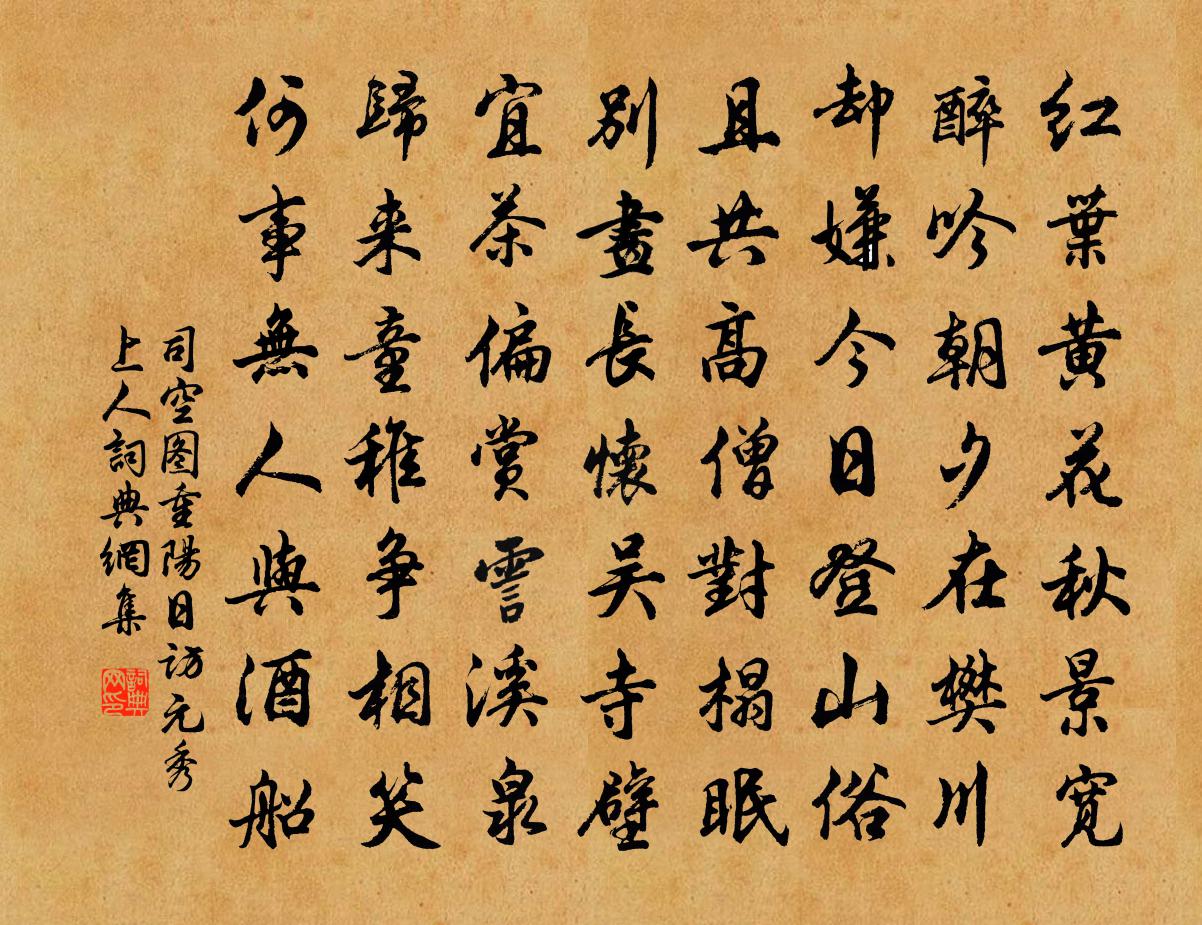 红葉黄花秋景寛
醉吟朝夕在樊川
却嫌今日登山俗
且共高僧對榻眠
別畫長懷吴寺壁
宜茶偏赏霅溪泉
歸来童稚争相笑
何事無人與酒船
司空图重陽日访元秀
上人詞典網集
詞典网印